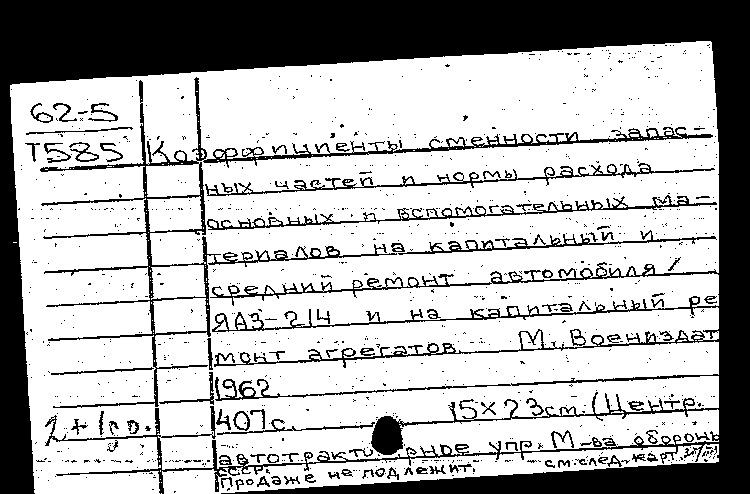 62-5
Т585 Коэффициенты сменности запас-
ных частей и нормы расхода
основных и вспомогательных ма-
териалов на капитальный и
средний ремонт автомобиля
ЯАЗ-214 и на капитальный ре
монт агрегатов. М., Воениздат
1962.
407с. 15×23см. (Центр.
2+1
упр. М-ва обороны
СССР.
Продаже не подлежит. см. след. карт.